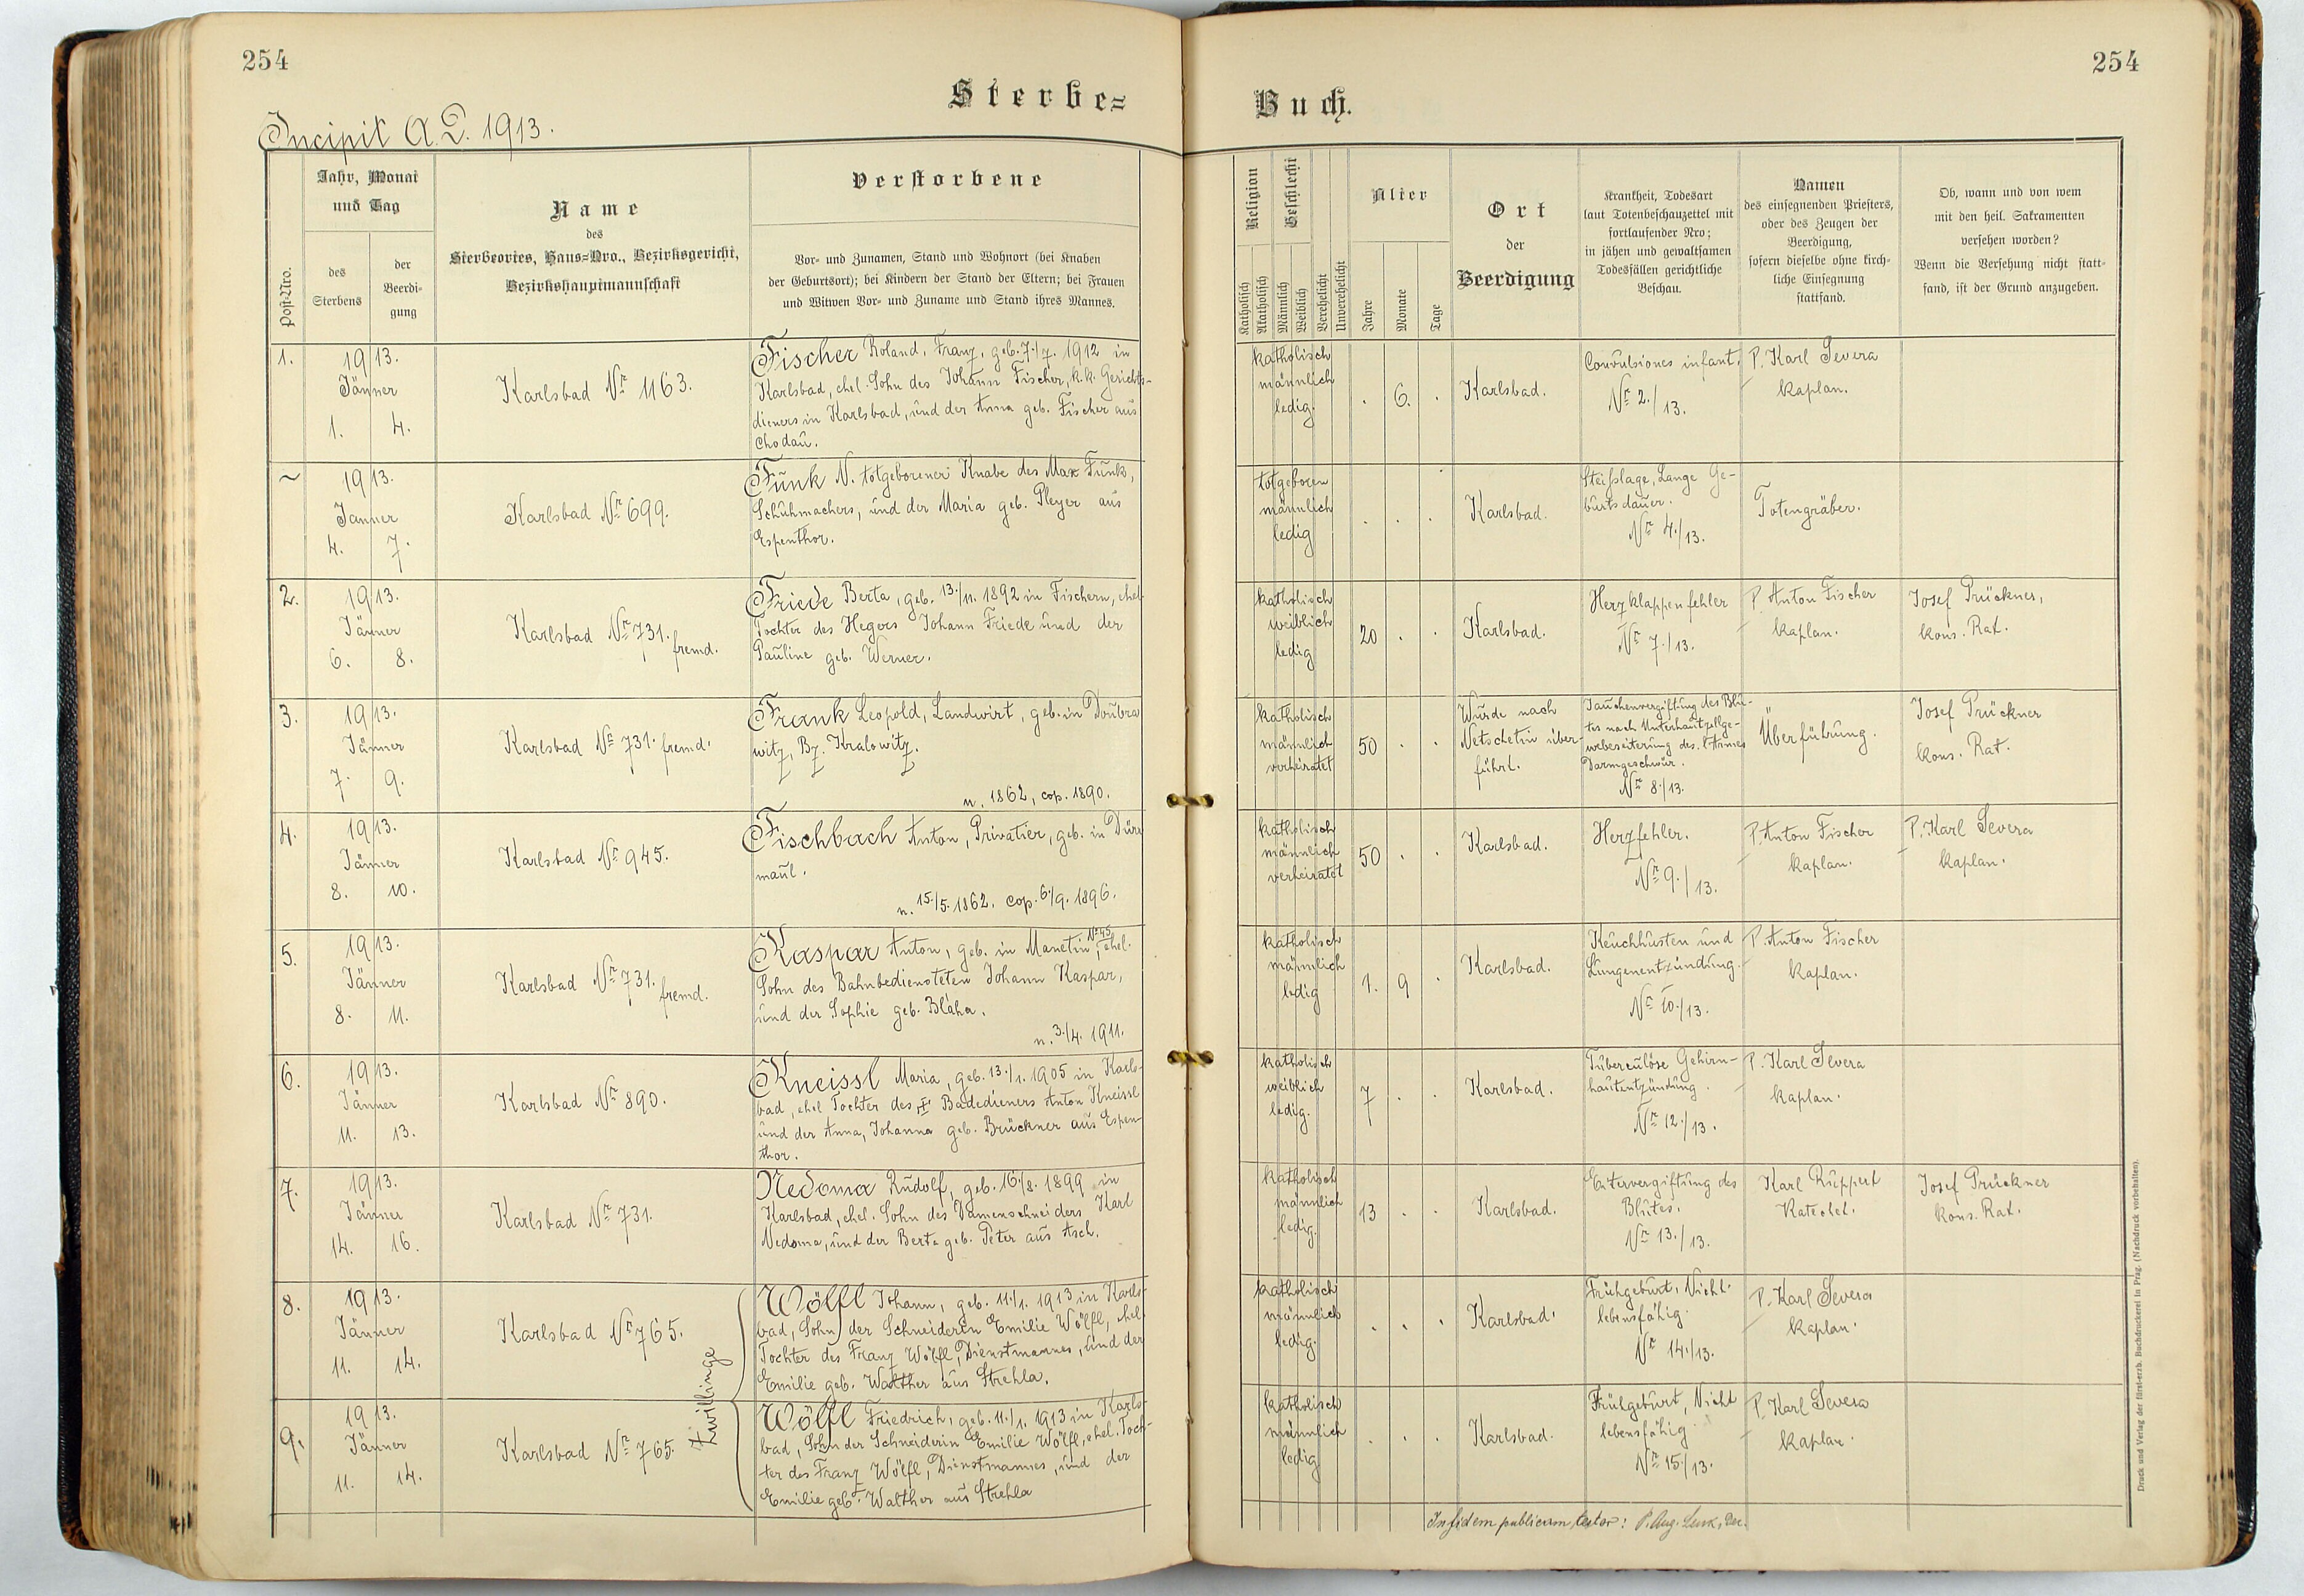 254
254
Sterbe=
Buch.
Incipit A. D. 1913.
Post-Nro.
Jahr, Monat
und Tag
des
Sterbens
der
Beerdi-
gung
Name
des
Sterbeortes, Haus-Nro., Bezirksgericht,
Bezirkshauptmannschaft
Verstorbene
Vor- und Zunamen, Stand und Wohnort (bei Knaben
der Geburtsort); bei Kindern der Stand der Eltern; bei Frauen
und Witwen Vor- und Zuname und Stand ihres Mannes.
Religion
Katholisch
Akatholisch
Geschlecht
Männlich
Weiblich
Verehelicht
Unverehelicht
Alter
Jahre
Monate
Tage
Ort
der
Beerdigung
Krankheit, Todesart
laut Totenbeschauzettel mit
fortlaufender Nro;
in jähen und gewaltsamen
Todesfällen gerichtliche
Beschau.
Namen
des einsegnenden Priesters,
oder des Zeugen der
Beerdigung,
sofern dieselbe ohne kirch-
liche Einsegnung
stattfand.
Ob, wann und von wem
mit den heil. Sakramenten
versehen worden?
Wenn die Versehung nicht statt-
fand, ist der Grund anzugeben.
1.
1913.
Jänner
1. 4.
Karlsbad Nr. 1163.
Fischer Roland, Franz, geb. 7./7. 1912 in
Karlsbad, ehel. Sohn des Johann Fischer, k.k. Gerichts-
dieners in Karlsbad, und der Anna geb. Fischer aus
Chodau.
katholisch
männlich
ledig.
. 6. .
Karlsbad.
Convulsiones infant.
Nr 2./13.
P. Karl Severa
kaplan.
~
1913.
Janner
4. 7.
Karlsbad Nr 699.
Funk N. totgeborener Knabe des Max Funk,
Schuhmachers, und der Maria geb. Pleyer aus
Espenthor.
totgeboren
männlich
ledig
. . .
Karlsbad.
Steißlage, Lange Ge-
burtsdauer.
Nr 4./13.
Totengräber.
2.
1913.
Jänner
6. 8.
Karlsbad Nr 731. fremd.
Friede Berta, geb. 13./11. 1892 in Fischern, ehel.
Tochter des Hegers Johann Friede und der
Pauline geb. Werner.
katholisch
weiblich
ledig
20 . .
Karlsbad.
Herzklappenfehler
Nr 7./13.
P. Anton Fischer
kaplan.
Josef Prückner,
kons. Rat.
3.
1913.
Jänner
7. 9.
Karlsbad Nr 731. fremd.
Frank Leopold, Landwirt, geb. in Doubra
witz, Bz. Kralowitz.
n. 1862, cop. 1890.
katholisch
männlich
verheiratet
50 . .
Wurde nach
Netschetin über-
führt.
Jauchenvergiftung des Blu-
tes nach Unterhautzellge-
webeseiterung des l. Armes
Darmgeschwür.
Nr 8./13.
Überführung.
Josef Prückner
kons. Rat.
4.
1913.
Jänner
8. 10.
Karlsbad Nr 945.
Fischbach Anton, Privatier, geb. in Dürr
maul.
n. 15./5. 1862. cop. 6./9. 1896.
katholisch
männlich
verheiratet
50 . .
Karlsbad.
Herzfehler.
Nr 9./13.
P. Anton Fischer
kaplan.
P. Karl Severa
kaplan.
5.
1913.
Jänner
8. 11.
Karlsbad Nr 731. fremd.
Kaspar Anton, geb. in Manetin Nr 45, ehel.
Sohn des Bahnbediensteten Johann Kaspar,
und der Sophie geb. Bláha.
n. 3./4. 1911.
katholisch
männlich
ledig
1. 9 .
Karlsbad.
Keuchhusten und
Lungenentzündung.
Nr 10./13.
P. Anton Fischer
kaplan.
6.
1913.
Jänner
11. 13.
Karlsbad Nr 890.
Kneissl Maria, geb. 13./1. 1905 in Karls-
bad, ehel Tochter des Badedieners Anton Kneissl
und der Anna, Johanna geb. Brückner aus Espen-
thor.
katholisch
weiblich
ledig.
7 . .
Karlsbad.
Tuberculöse Gehirn-
hautentzündung.
Nr 12./13.
P. Karl Severa
kaplan.
7.
1913.
Jänner
14. 16.
Karlsbad Nr 731.
Nedoma Rudolf, geb. 16./8. 1899 in
Karlsbad, ehel. Sohn des Damenschneiders Karl
Nedoma, und der Berta geb. Peter aus Asch.
katholisch
männlich
ledig.
13 . .
Karlsbad.
Eitervergiftung des
Blutes.
Nr 13./13.
Karl Ruppert
Katechet.
Josef Prückner
kons. Rat.
8.
1913.
Jänner
11. 14.
Karlsbad Nr 765.
Zwillinge
Wölfl Johann, geb. 11./1. 1913 in Karls-
bad, Sohn der Schneiderin Emilie Wölfl, ehel.
Tochter des Franz Wölfl, Dienstmannes, und der
Emilie geb. Walther aus Strehla.
katholisch
männlich
ledig.
. . .
Karlsbad.
Frühgeburt, Nicht-
lebensfähig.
Nr 14./13.
P. Karl Severa
kaplan.
9.
1913.
Jänner
11. 14.
Karlsbad Nr 765.
Wölfl Friedrich, geb. 11./1. 1913 in Karls-
bad, Sohn der Schneiderin Emilie Wölfl, ehel. Toch-
ter des Franz Wölfl, Dienstmannes, und der
Emilie geb. Walther aus Strehla
katholisch
männlich
ledig
. . .
Karlsbad.
Frühgeburt, Nicht
lebensfähig
Nr 15./13.
P. Karl Severa
kaplan.
In fidem publicam testor: P. Aug. Lenk, Dec.
Druck und Verlag der fürst-erzb. Buchdruckerei in Prag. (Nachdruck vorbehalten).